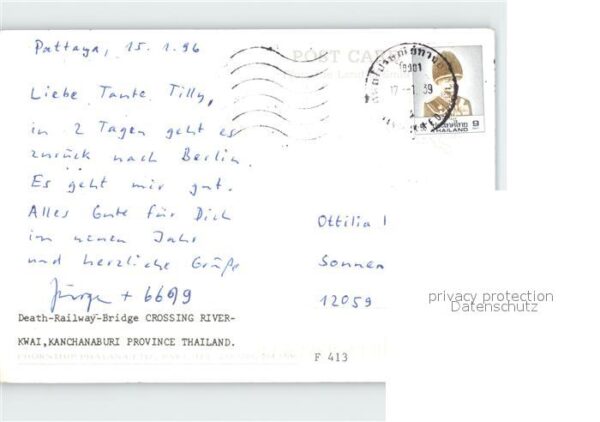 Pattaya, 15.1.96
POST CARD
Liebe Tante Tilly,
in 2 Tagen geht es
zurück nach Berlin.
Es geht mir gut.
Alles Gute für Dich
im neuen Jahr
und herzliche Grüße
Ottilia
Sonnen
12059
THAILAND 9
privacy protection
Datenschutz
Death-Railway-Bridge CROSSING RIVER-
KWAI,KANCHANABURI PROVINCE THAILAND.
F 413